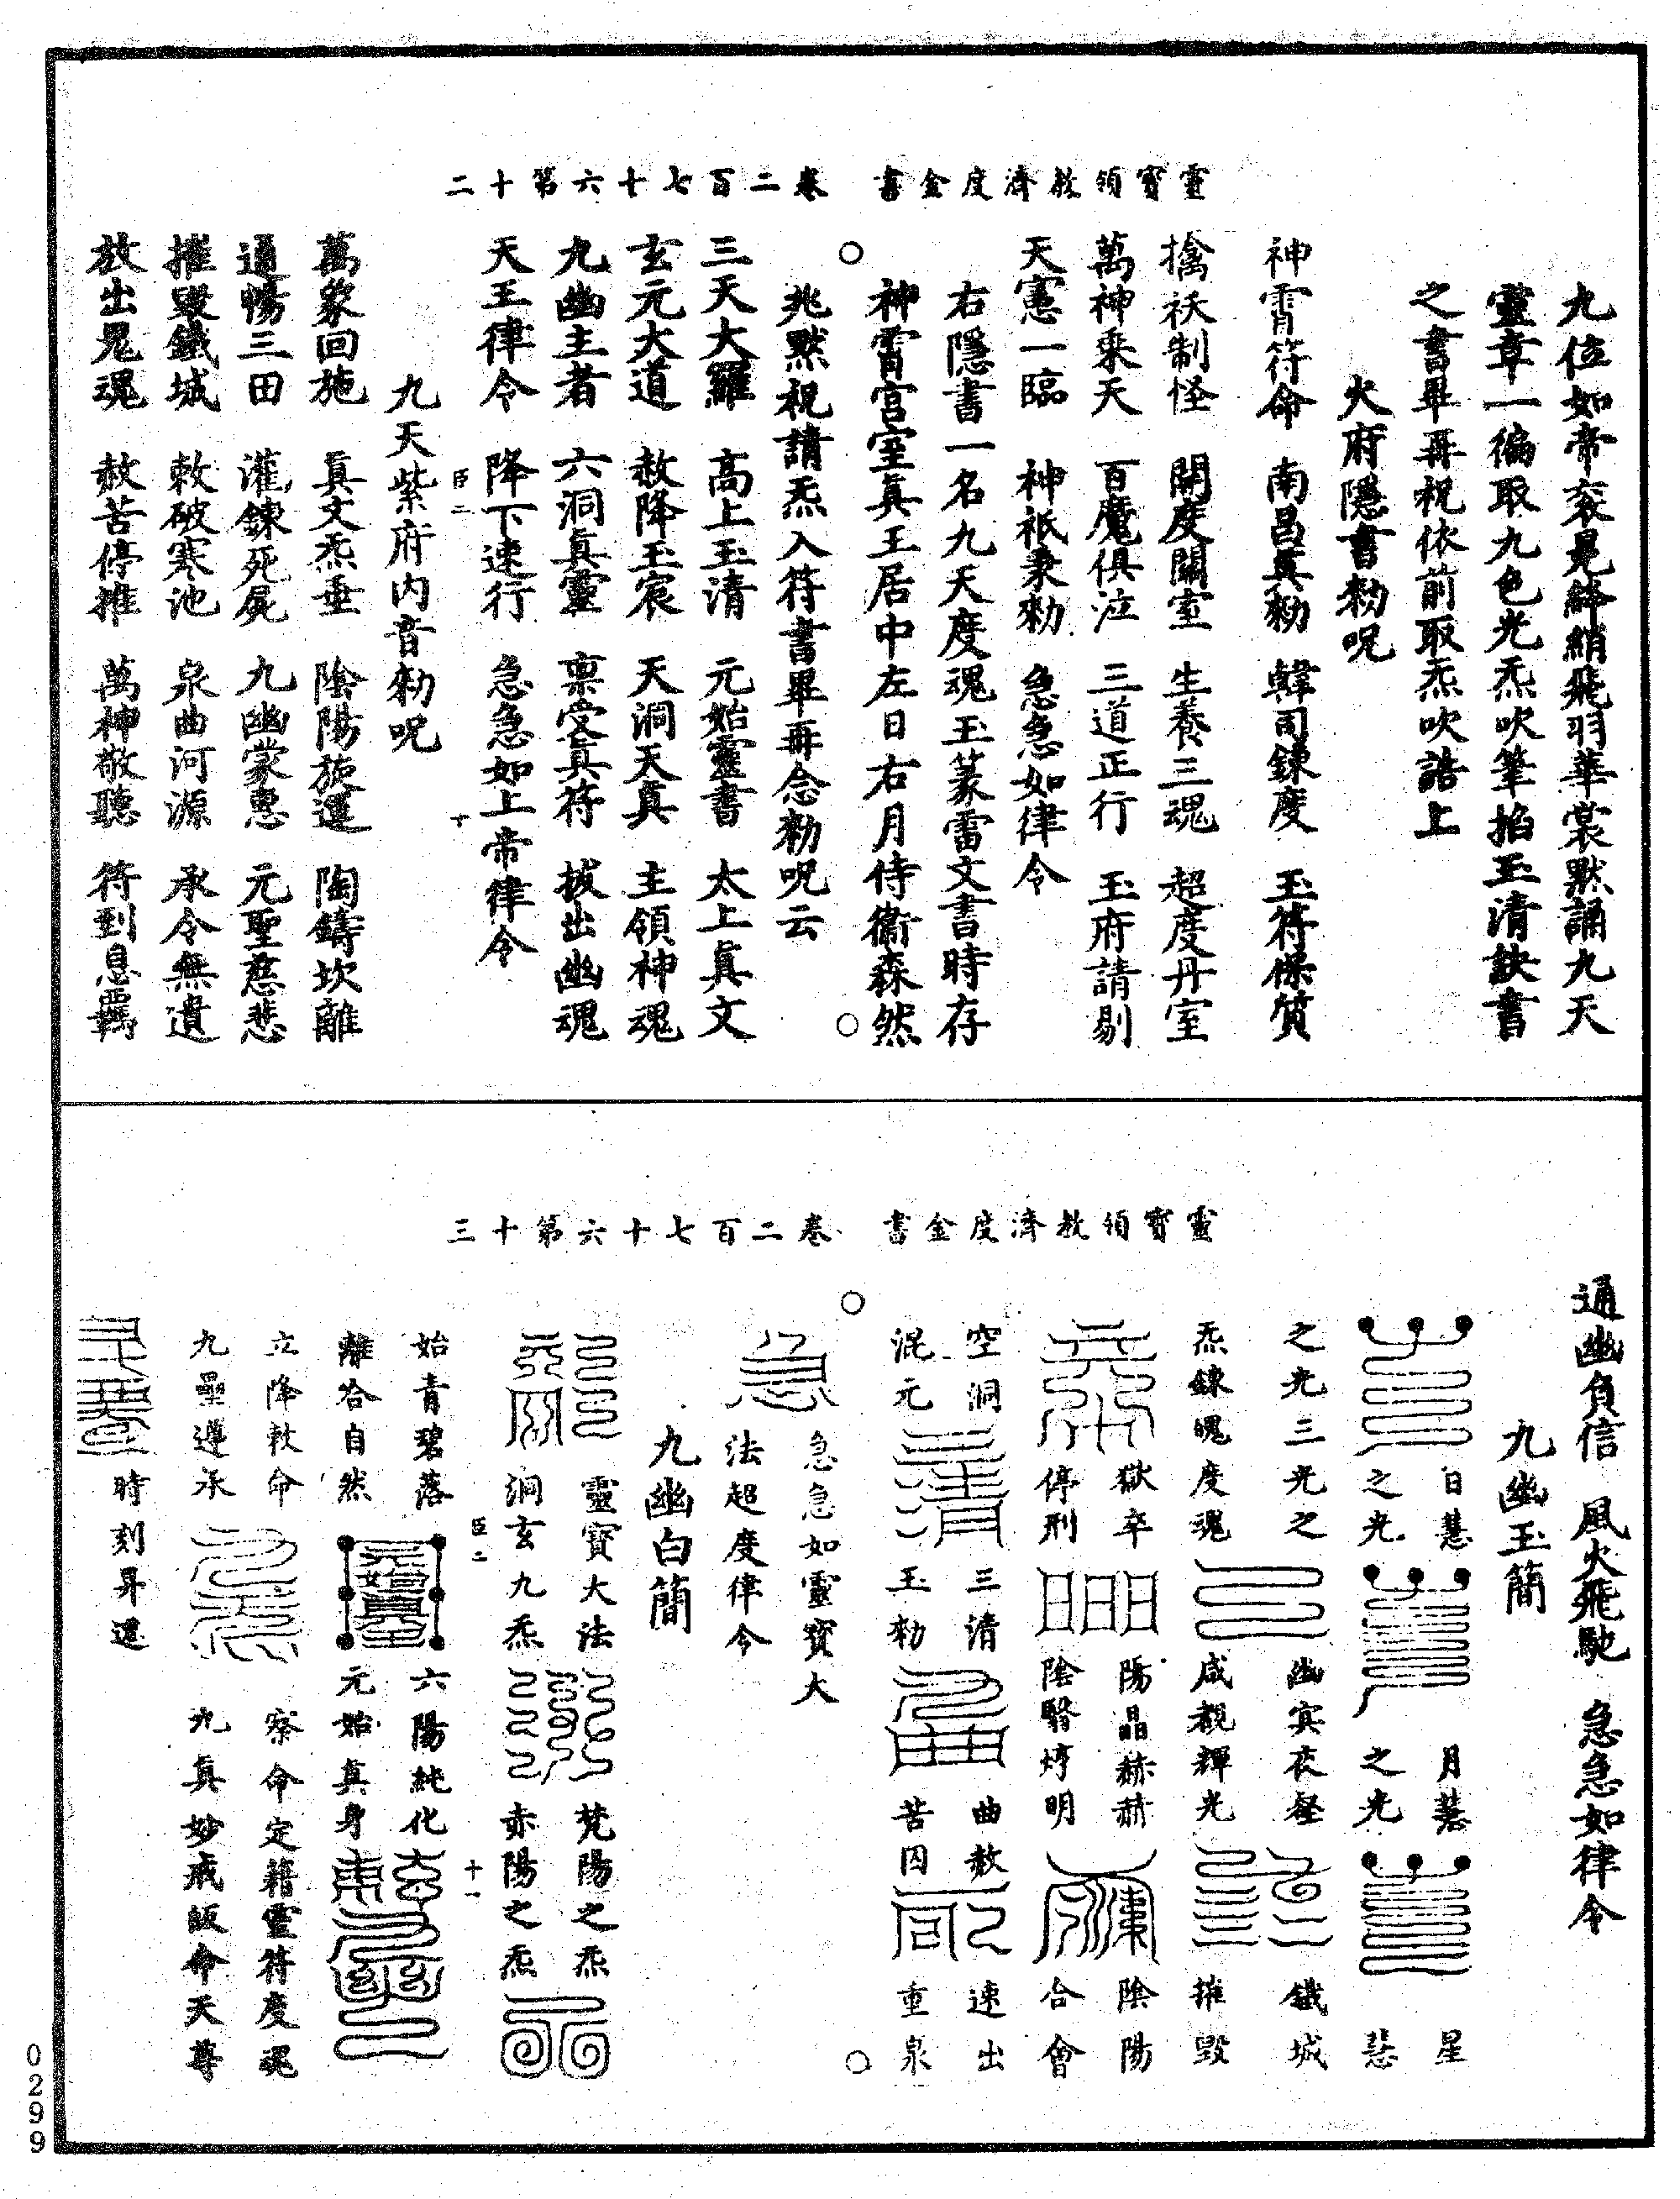 靈寶領教濟度金書　卷二百七十六第十二
九位如帝衮冕絳綃飛羽華裳默誦九天
靈章一徧取九色光炁吹筆掐玉清訣書
之書畢再祝依前取炁吹誥上
火府隱書勑呪
神霄符命　南昌真勑　韓司鍊度　玉符保質
擒祅制怪　開度關室　生養三魂　超度丹室
萬神乘天　百魔俱泣　三道正行　玉府請剔
天憲一臨　神祇秉勑　急急如律令
右隱書一名九天度魂玉篆雷文書時存
神霄宮室真王居中左日右月侍衞森然
兆默祝請炁入符書畢再念勑呪云
三天大羅　高上玉清　元始靈書　太上真文
玄元大道　赦降玉宸　天洞天真　主領神魂
九幽主者　六洞真靈　禀受真符　拔出幽魂
天王律令　降下速行　急急如上帝律令
臣二　十
九天紫府内音勑呪
萬象回施　真文炁垂　陰陽旋運　陶鑄坎離
通暢三田　灌鍊死屍　九幽蒙惠　元聖慈悲
摧毀鐵城　敕破寒池　泉曲河源　承令無遺
放出鬼魂　赦苦停推　萬神敬聽　符到息羈
靈寶領教濟度金書　卷二百七十六第十三
通幽負信　風火飛馳　急急如律令
九幽玉簡
日慧之光　月慧之光　星慧
之光三光之炁鍊魄度魂　幽冥夜壑咸覩輝光　鐵城摧毀
獄卒停刑　陽晶赫赫陰翳焞明　陰陽合會
空洞混元　三清玉勑　曲赦苦囚　速出重泉
急急如靈寶大法超度律令
九幽白簡
靈寶大法洞玄九炁　梵陽之炁赤陽之炁
臣二　十一
始青碧落離合自然　六陽純化元始真身
立降敕命九壘遵承　察命定籍靈符度魂九真妙戒皈命天尊
時刻昇還
0299